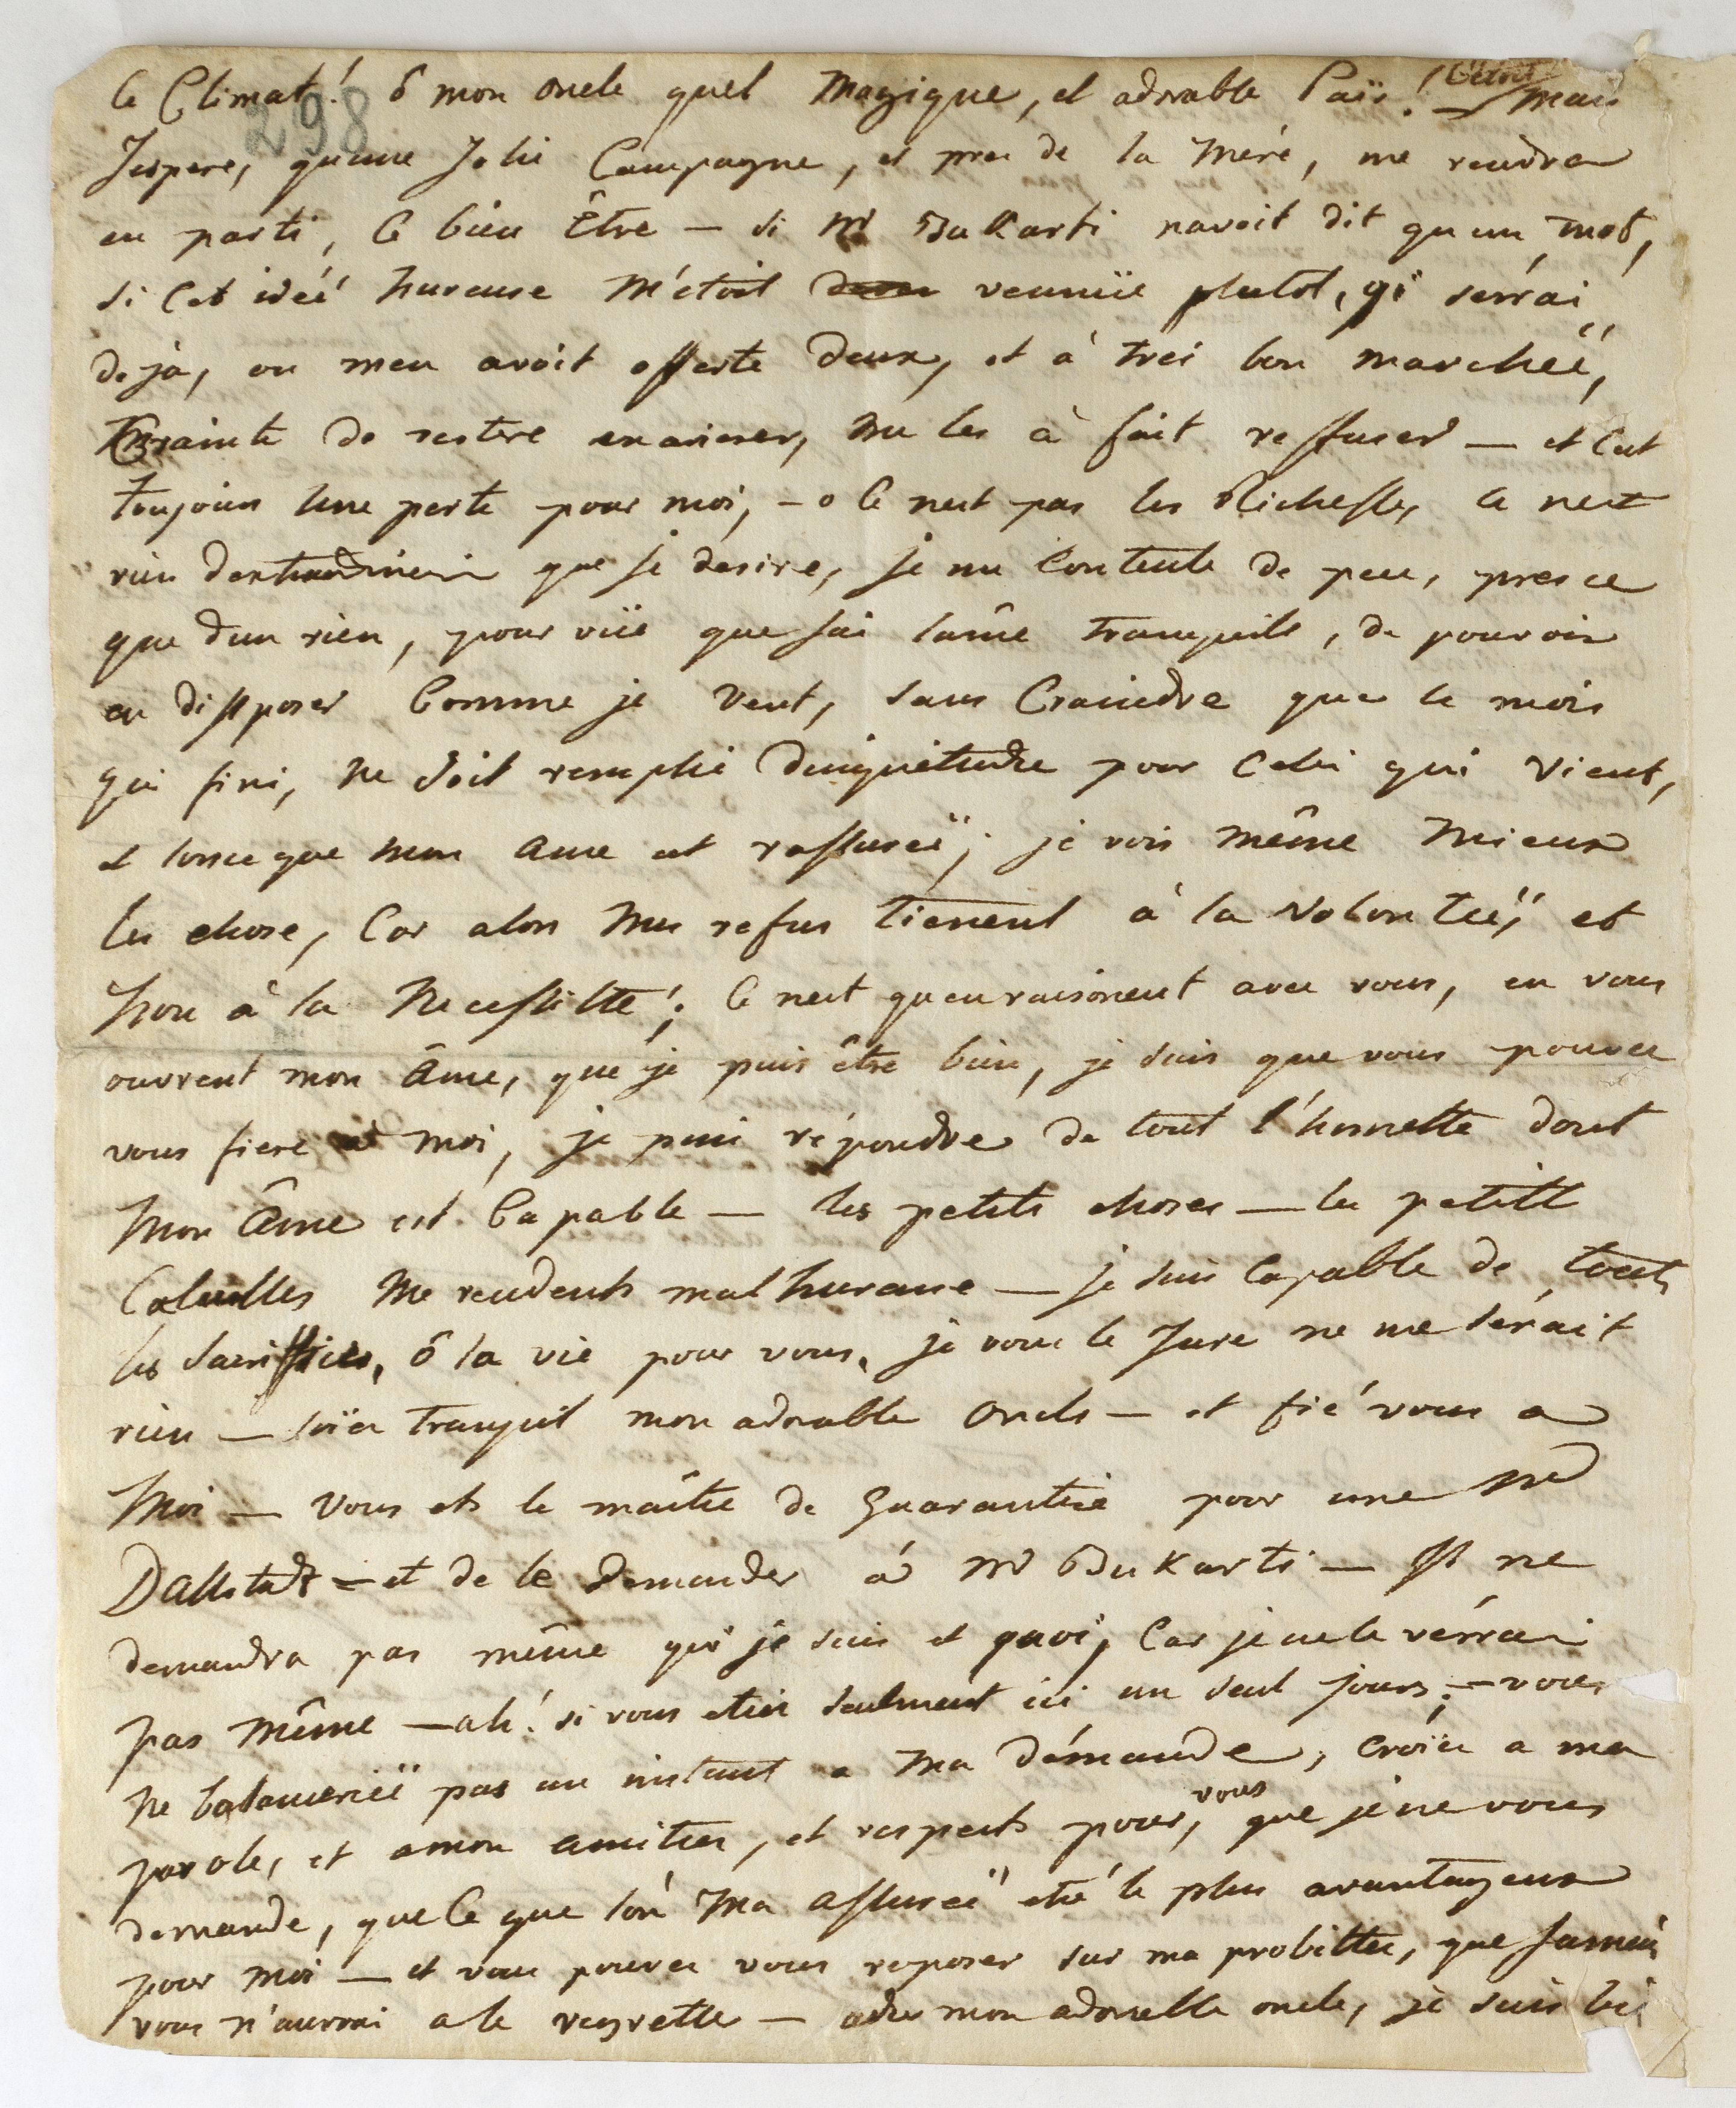 le Climat! ô mon oncle quel Magique, et adorable Païs! C'étoit mais
298
Jespere, qu'une Jolie Campagne, et pres de la Méré, me rendra
en parti, le bien Être — si Mr Bukarti navoit dit qu'un mot,
si Cet ideé hureuse M'étoit venuiie plutot, gi serrai
deja, on men avoit offerte deux, et à tres bon marcheé,
Crainte de restere enarierer, me les à fait reffuser — et Cest
toujours Une perte pour moi, — o Ce nest pas les Richesses, ce nest
rien que je desire, je me Contente de peu, presce
que dun rien, pour viie que jai lame tranquile, de pouvoir
en dissposer Comme je veut, sans Craindre que le mois
qui fini, ne soit remplie dinquietude pour Celui qui vient,
et lorsce que mon ame est rassureë, je vois même mieux
les chose, Car alors Mes refus tienent à la volonteé, et
non à la Necessitte! Ce nest qu'en raisonent avec vous, en vous
ouvrent mon âme, que je puis être bien, je sais que vous pouvez
vous fiere a moi, je puis répondre de tout l'honnette dont
Mon âme est Capable — les petits choses — les petitt
Caluilles Me rendents malhureuse — je suis Capable de tout
les Sacriffices, ô la vie pour vous, je vous le Jure ne me sérait
rien — soïez tranquil mon adorable Oncle — et fié vous a
Moi — Vous ets le maitre de Guarantie pour une Md
Dallstadt — et de le demander à Mr Bukarti — Il ne
demandra pas même qui je suis et quoi, Car je ne le vérrai
pas même — ah! si vous etiez seulment ici un seul jours, — vous
ne balanceriéï pas un instant a Ma démande, croïez a ma
parole, et a mon amitiez, et respects pour, vous que je ne vous
demande, que Ce que lon Ma assureë etré le plus avantageux
pour moi — et vous pouvez vous reposer sur ma probittez, que Jamais
vous n'aurrai a le regrette — adieu mon adorable oncle, je suis